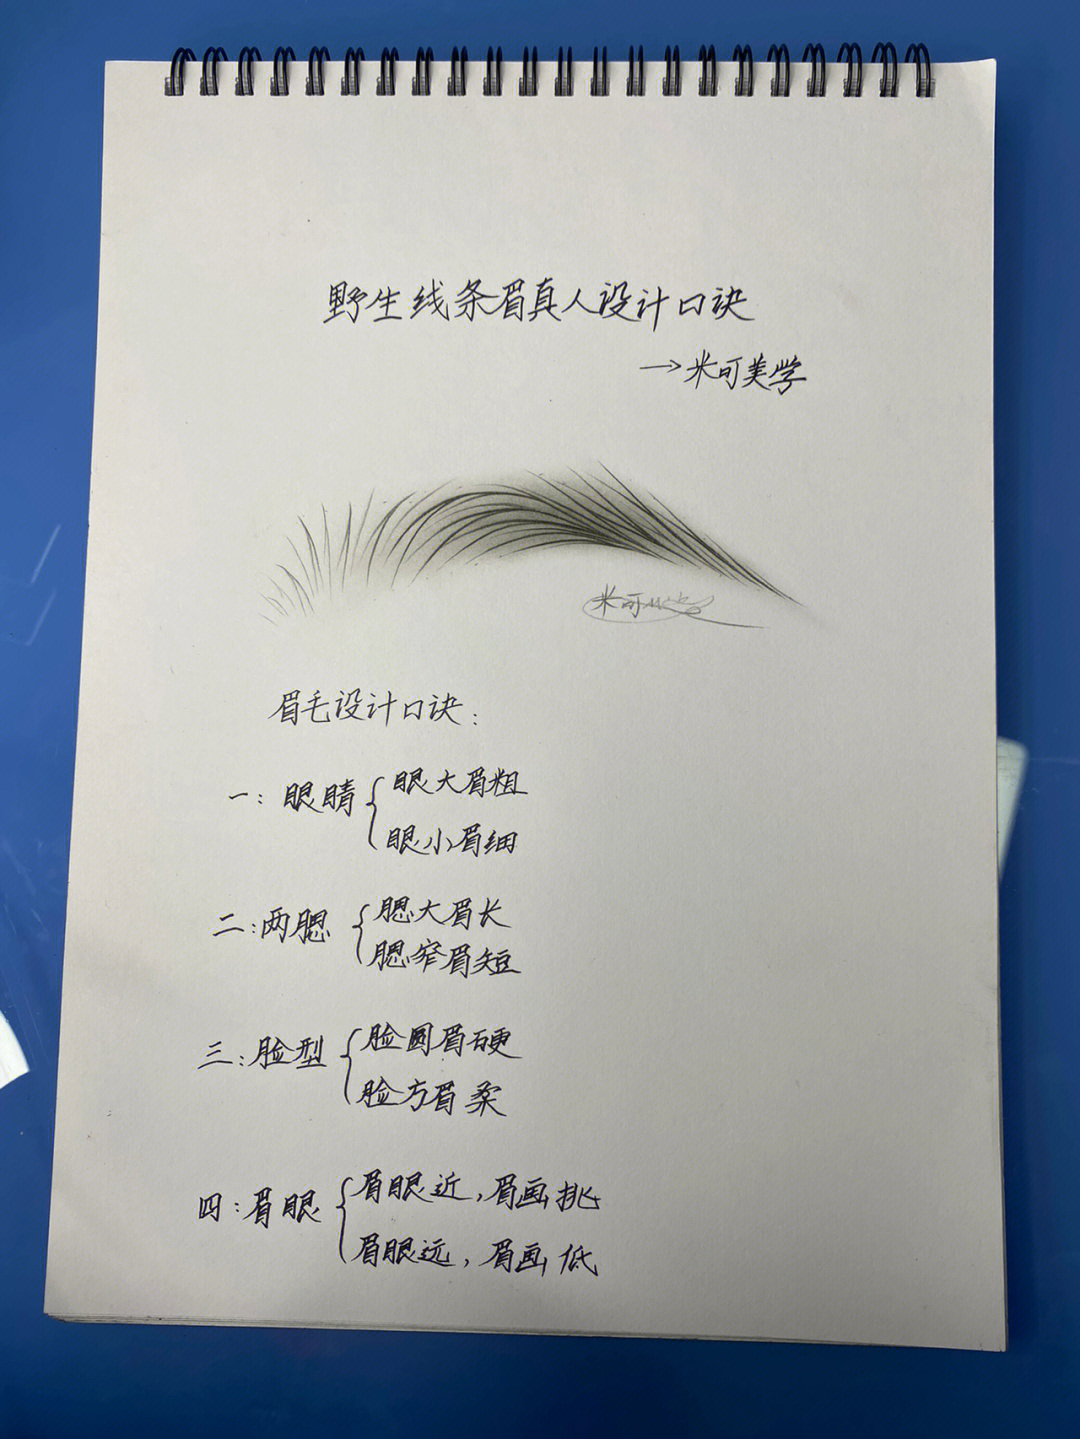 野生线条眉真人设计口诀
→米可美学
米可
眉毛设计口诀：
一：眼睛{眼大眉粗
眼小眉细
二：两腮{腮大眉长
腮窄眉短
三：脸型{脸圆眉硬
脸方眉柔
四：眉眼{眉眼近，眉画挑
眉眼远，眉画低